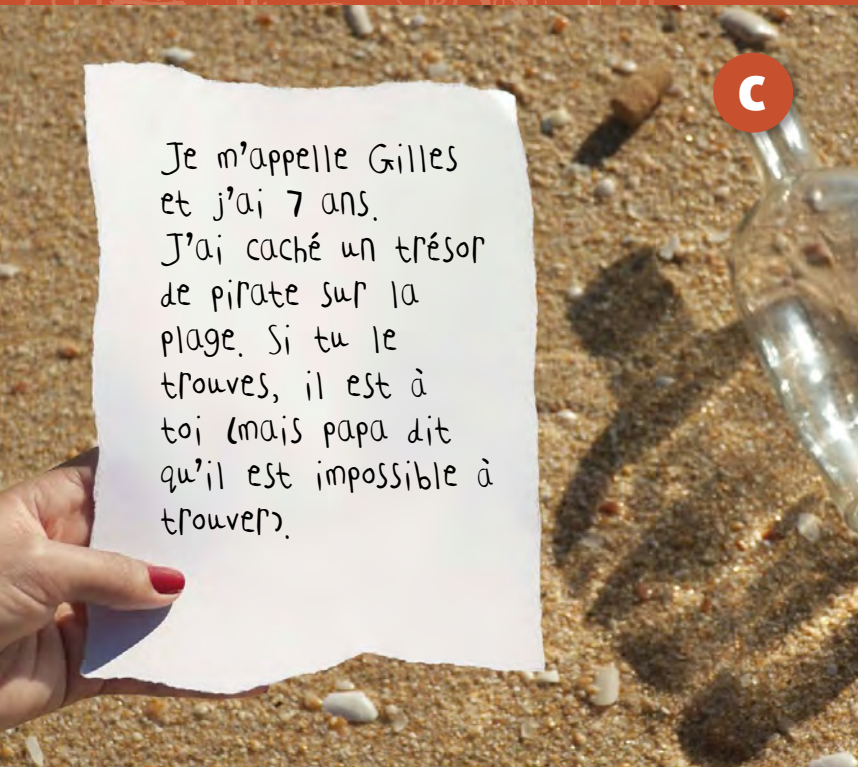 C
Je m'appelle Gilles
et j'ai 7 ans.
J'ai caché un trésor
de pirate sur la
plage. Si tu le
trouves, il est à
toi (mais papa dit
qu'il est impossible à
trouver).